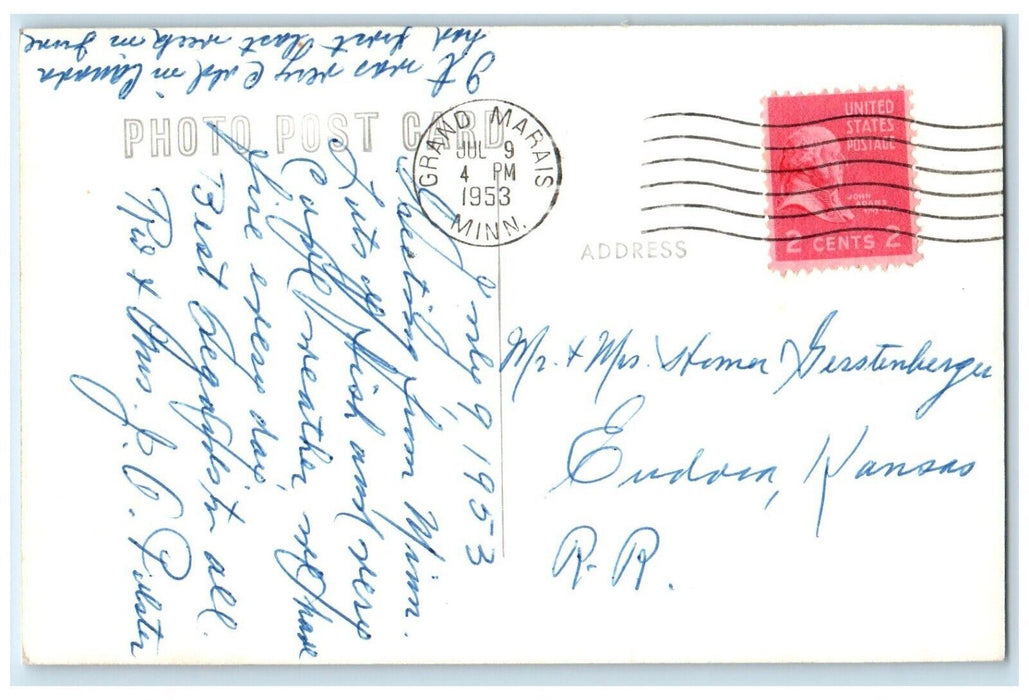 PHOTO POST CARD
GRAND MARAIS
JUL 9
4 PM
1953
MINN.
UNITED
STATES
POSTAGE
JOHN
ADAMS
2 CENTS 2
ADDRESS
July 9, 1953
Greeting from Minn.
Lots of Fish and very
Cool weather, we have
fire every day,
Best Regards to all.
Mr & Mrs. J. C.
It was very Cold in Canada
had frost last week in June
Mr. & Mrs. Homer Gerstenberger
Eudora, Kansas
R.R.